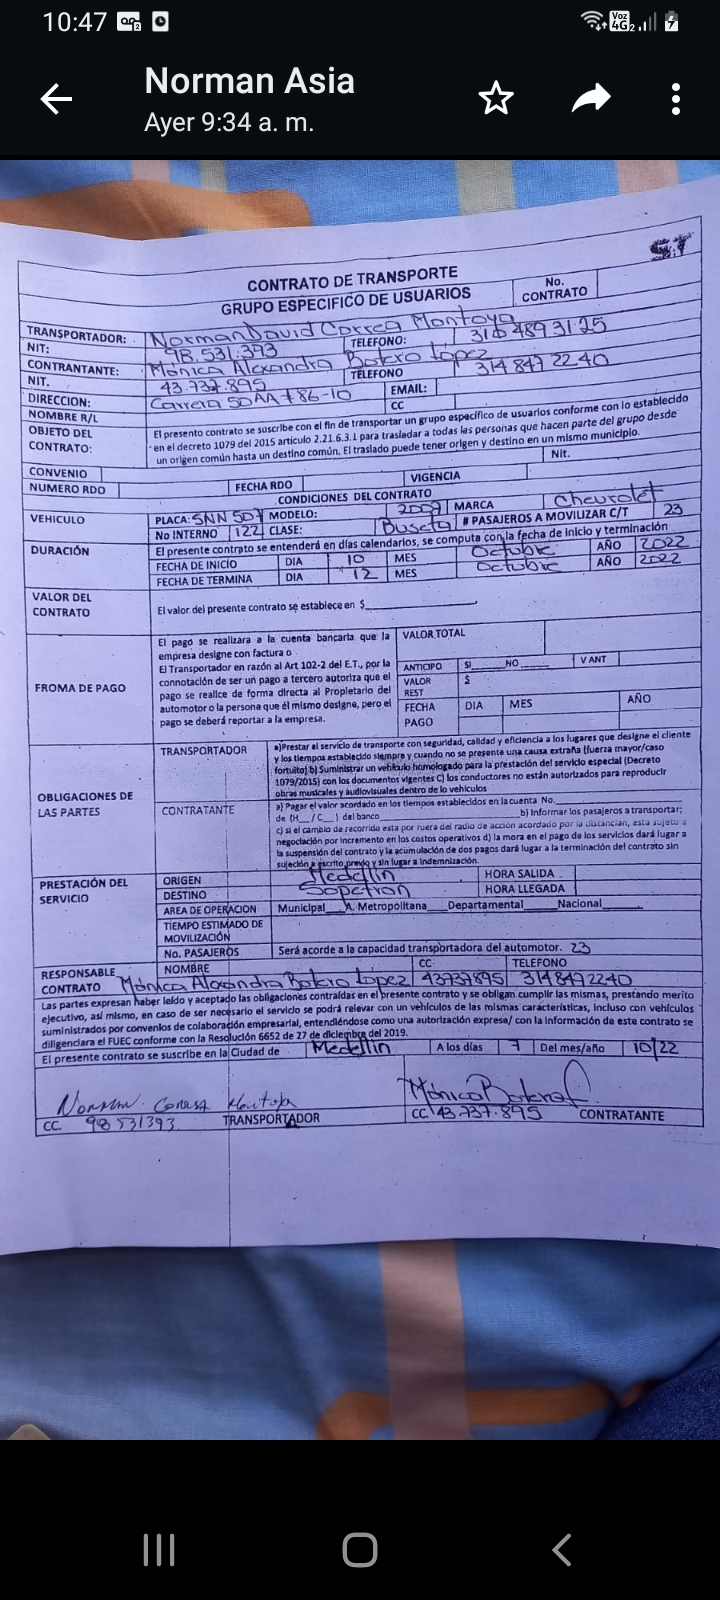 10:47
Voz
4G 2
Norman Asia
Ayer 9:34 a. m.
CONTRATO DE TRANSPORTE
GRUPO ESPECIFICO DE USUARIOS
No.
CONTRATO
TRANSPORTADOR: Norman David Correa Montoya
NIT: 98.531.393 TELEFONO: 316 489 31 25
CONTRANTANTE: Mónica Alexandra Botero Lopez
NIT. 43.737.895 TELEFONO 314 847 22 40
DIRECCION: Carrera 50AA # 86-10 EMAIL:
NOMBRE R/L CC
OBJETO DEL CONTRATO: El presento contrato se suscribe con el fin de transportar un grupo especifico de usuarios conforme con lo establecido
en el decreto 1079 del 2015 articulo 2.21.6.3.1 para trasladar a todas las personas que hacen parte del grupo desde
un origen común hasta un destino común. El traslado puede tener origen y destino en un mismo municipio.
CONVENIO Nit.
NUMERO RDO FECHA RDO VIGENCIA
CONDICIONES DEL CONTRATO
VEHICULO PLACA: SNN 507 MODELO: 2009 MARCA Chevrolet
No INTERNO 122 CLASE: Buseta # PASAJEROS A MOVILIZAR C/T 23
DURACIÓN El presente contrato se entenderá en días calendarios, se computa con la fecha de inicio y terminación
FECHA DE INICIO DIA 10 MES Octubre AÑO 2022
FECHA DE TERMINA DIA 12 MES Octubre AÑO 2022
VALOR DEL CONTRATO El valor del presente contrato se establece en $
FROMA DE PAGO
El pago se realizara a la cuenta bancaria que la
empresa designe con factura o
El Transportador en razón al Art 102-2 del E.T., por la
connotación de ser un pago a tercero autoriza que el
pago se realice de forma directa al Propietario del
automotor o la persona que él mismo designe, pero el
pago se deberá reportar a la empresa.
VALOR TOTAL
ANTICIPO SI____NO____ V ANT
VALOR REST $
FECHA PAGO DIA MES AÑO
OBLIGACIONES DE LAS PARTES
TRANSPORTADOR a)Prestar el servicio de transporte con seguridad, calidad y eficiencia a los lugares que designe el cliente
y los tiempos establecido siempre y cuando no se presente una causa extraña (fuerza mayor/caso
fortuito) b) Suministrar un vehículo homologado para la prestación del servicio especial (Decreto
1079/2015) con los documentos vigentes C) los conductores no están autorizados para reproducir
obras musicales y audiovisuales dentro de lo vehículos
CONTRATANTE a) Pagar el valor acordado en los tiempos establecidos en la cuenta No.
de (H__/C__) del banco____ b) Informar los pasajeros a transportar;
c) si el cambio de recorrido esta por fuera del radio de acción acordado por la distancian, esta sujeto a
negociación por incremento en los costos operativos d) la mora en el pago de los servicios dará lugar a
la suspensión del contrato y la acumulación de dos pagos dará lugar a la terminación del contrato sin
sujeción a escrito previo y sin lugar a indemnización.
PRESTACIÓN DEL SERVICIO ORIGEN Medellin HORA SALIDA
DESTINO Sopetran HORA LLEGADA
AREA DE OPERACION Municipal___A. Metropolitana___Departamental____Nacional____
TIEMPO ESTIMADO DE
MOVILIZACIÓN
No. PASAJEROS Será acorde a la capacidad transportadora del automotor. 23
RESPONSABLE CONTRATO NOMBRE CC TELEFONO
Mónica Alexandra Botero Lopez 43737895 3148472240
Las partes expresan haber leído y aceptado las obligaciones contraídas en el presente contrato y se obligan cumplir las mismas, prestando merito
ejecutivo, así mismo, en caso de ser necesario el servicio se podrá relevar con un vehículos de las mismas características, incluso con vehículos
suministrados por convenios de colaboración empresarial, entendiéndose como una autorización expresa/ con la información de este contrato se
diligenciara el FUEC conforme con la Resolución 6652 de 27 de diciembre del 2019.
El presente contrato se suscribe en la Ciudad de Medellin A los días 7 Del mes/año 10/22
Norman Correa Montoya Mónica Botero
CC. 98531393 TRANSPORTADOR CC. 43.737.895 CONTRATANTE